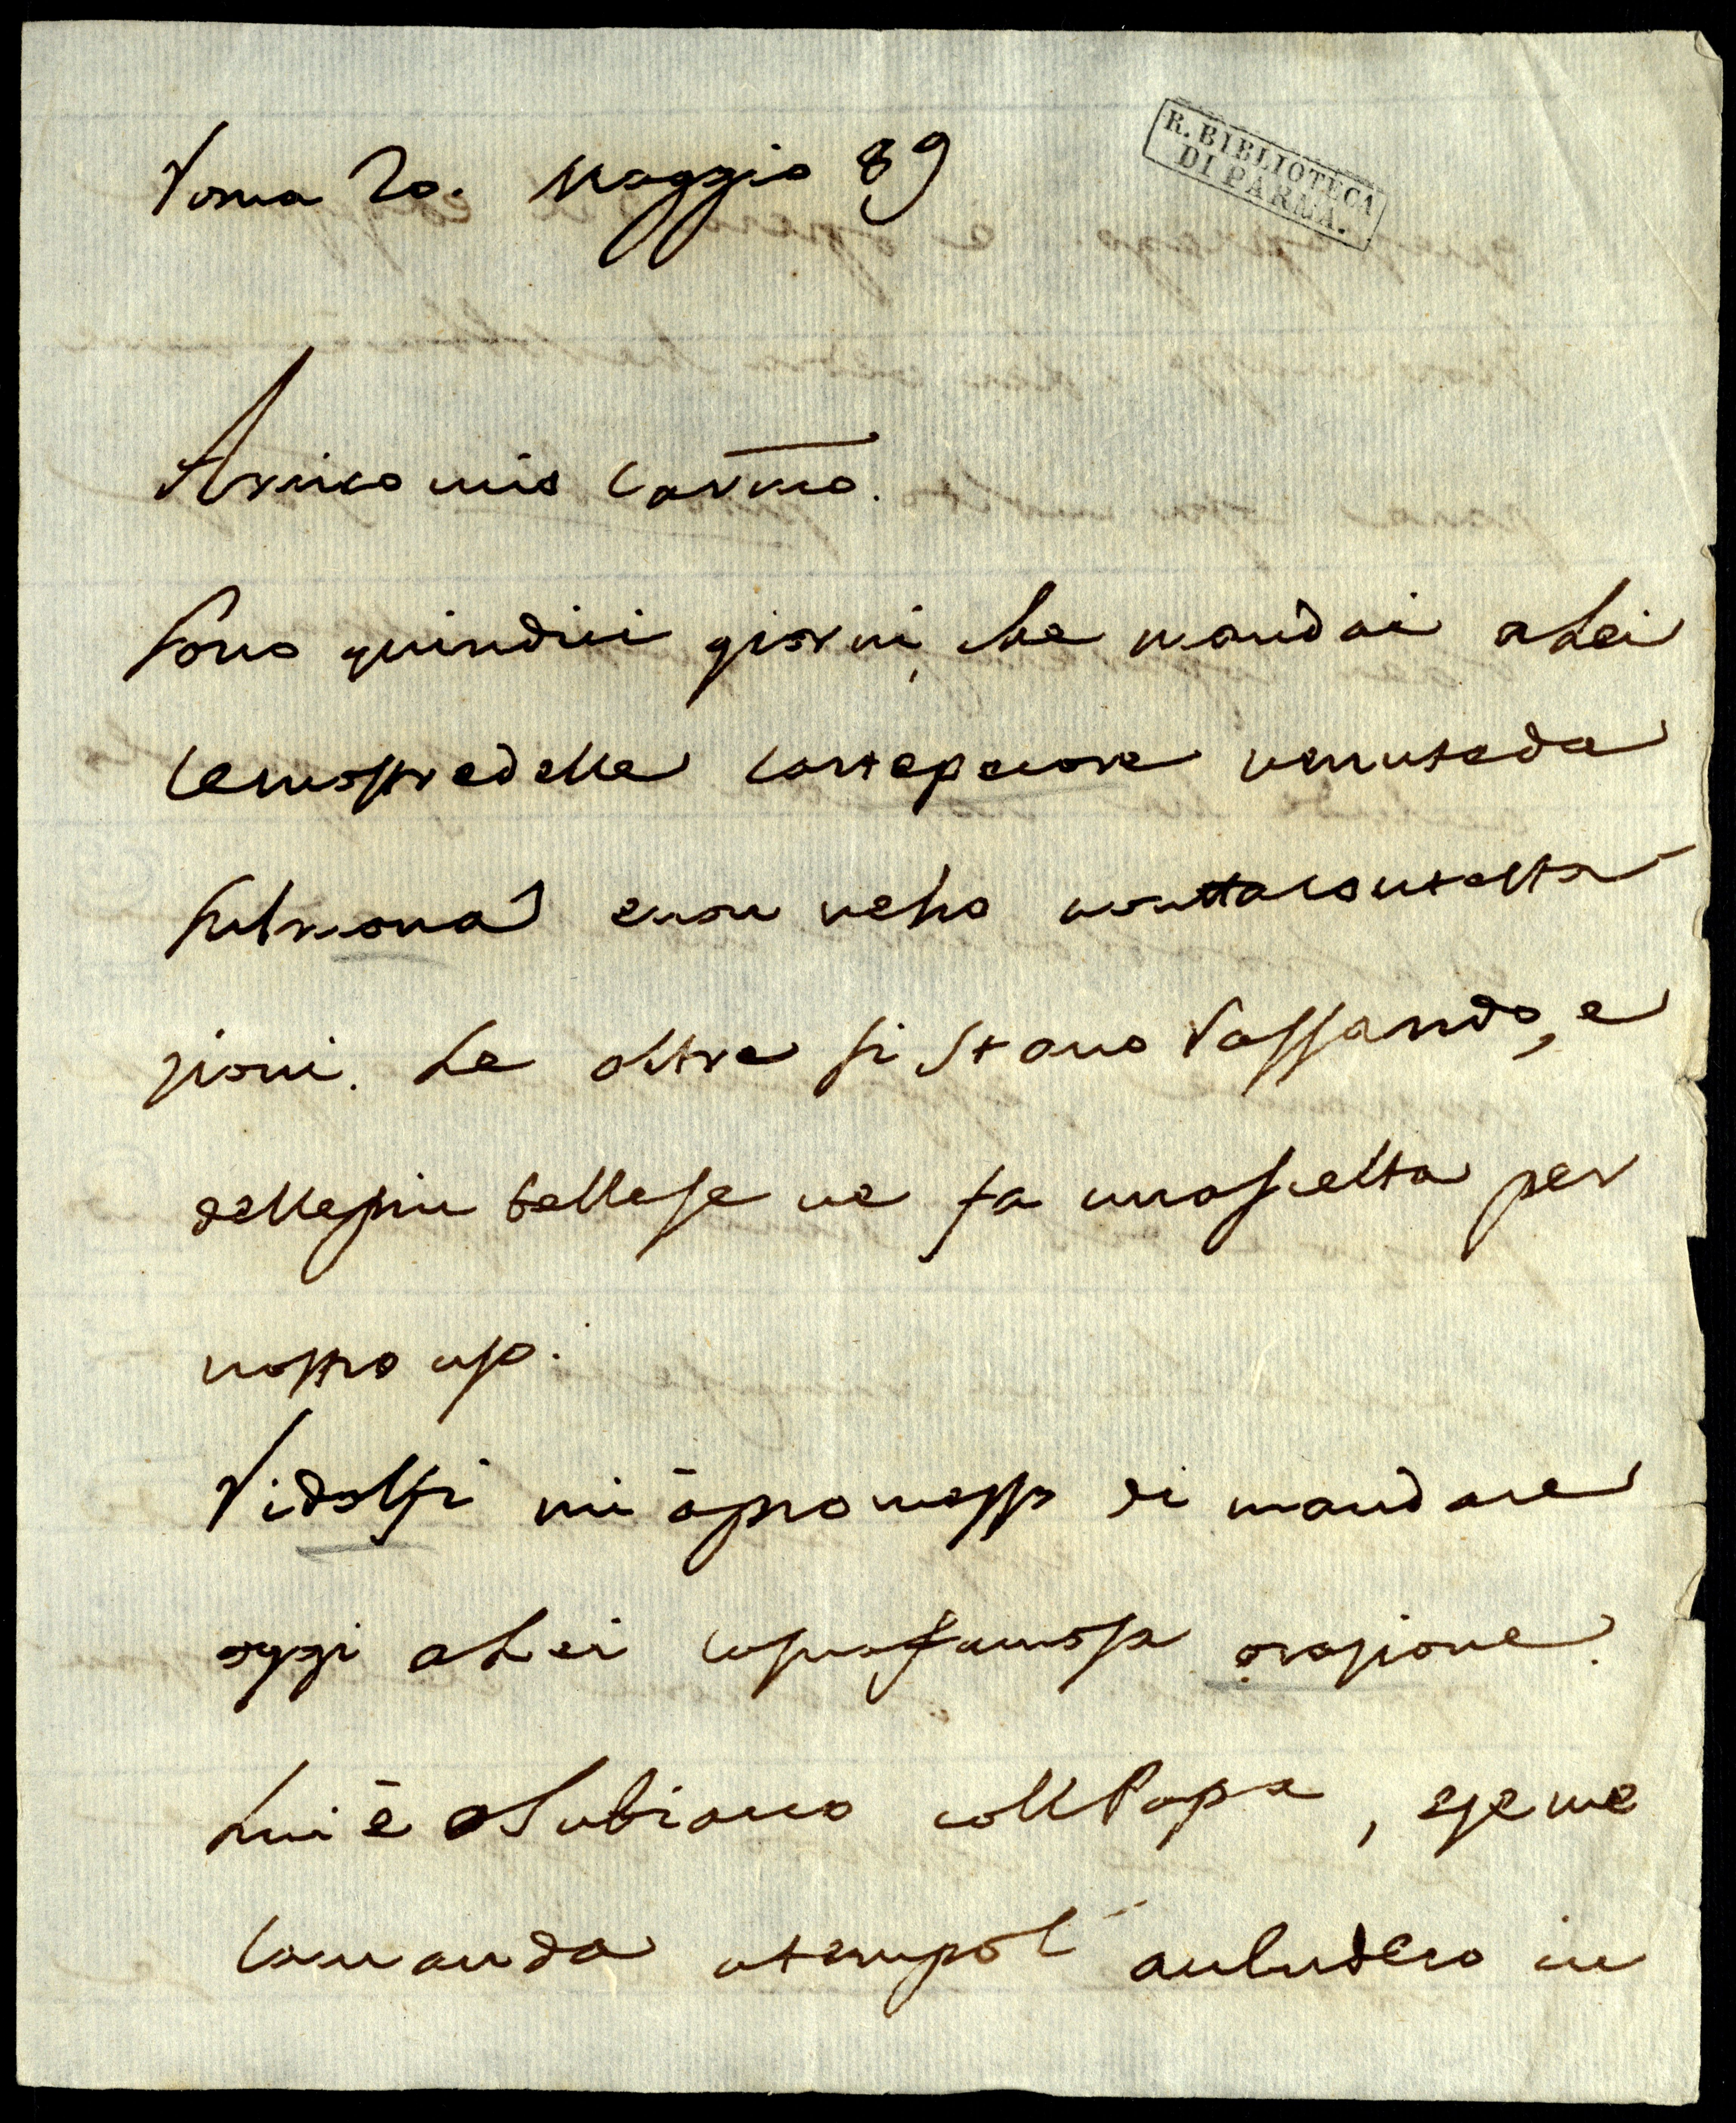 Roma 20. Maggio 89
R. BIBLIOTECA
DI PARMA.
Amico mio Carmo.
Sono quindici giorni, che mandai a Lei
le mostre delle cartepecore venute da
Sulmona e non ne ho avuta contesta
zioni. Le altre si stano rassando, e
delle piu belle se ne fa una scelta per
nostro uso.
Ridolfi mi à promesso di mandare
oggi a Lei la sua famosa orazione.
Lui è a Subiaco coll Papa, e se me
la manda a tempo l' includero in